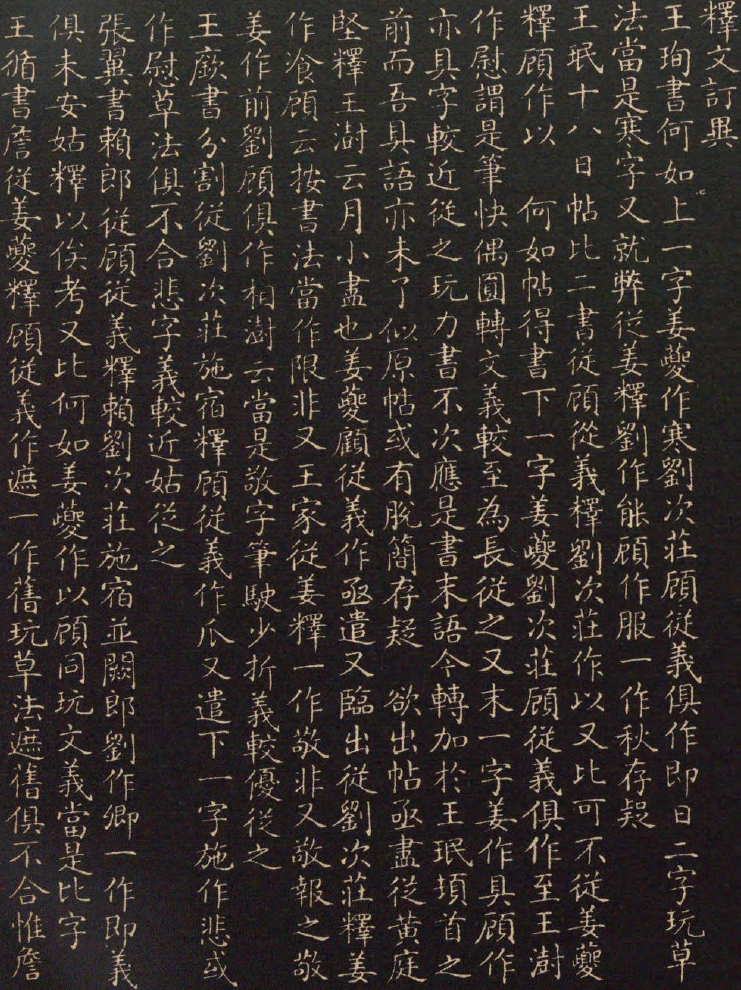 釋文訂異
王珣書何如上一字姜夔作寒劉次莊顧從義俱作即日二字玩草
法當是寒字又就弊從姜釋劉作能顧作服一作秋存疑
王珉十八日帖比二書從顧從義釋劉次莊作以又比可不從姜夔
釋顧作以 何如帖得書下一字姜夔劉次莊顧從義俱作至王澍
作慰謂是筆快偶圓轉文義較至為長從之又末一字姜作具顧作
亦具字較近從之玩力書不次應是書末語今轉加於王珉頊首之
前而吾具語亦未了似原帖或有脫簡存疑 欲出帖亟盡從黃庭
堅釋王澍云月小盡也姜夔顧從義作亟遣又臨出從劉次莊釋姜
作飡顧云按書法當作限非又王家從姜釋一作敬非又敬報之敬
姜作前劉顧俱作相澍云當是敬字筆駛少折義較優從之
王廞書分割從劉次莊施宿釋顧從義作爪又遣下一字施作悲或
作慰草法俱不合悲字義較近姑從之
張翼書賴郎從顧從義釋賴劉次莊施宿並闕郎劉作卿一作即義
俱未安姑釋以俟考又比何如姜夔作以顧同玩文義當是比字
王循書詹從姜夔釋顧從義作遮一作舊玩草法遮舊俱不合惟詹